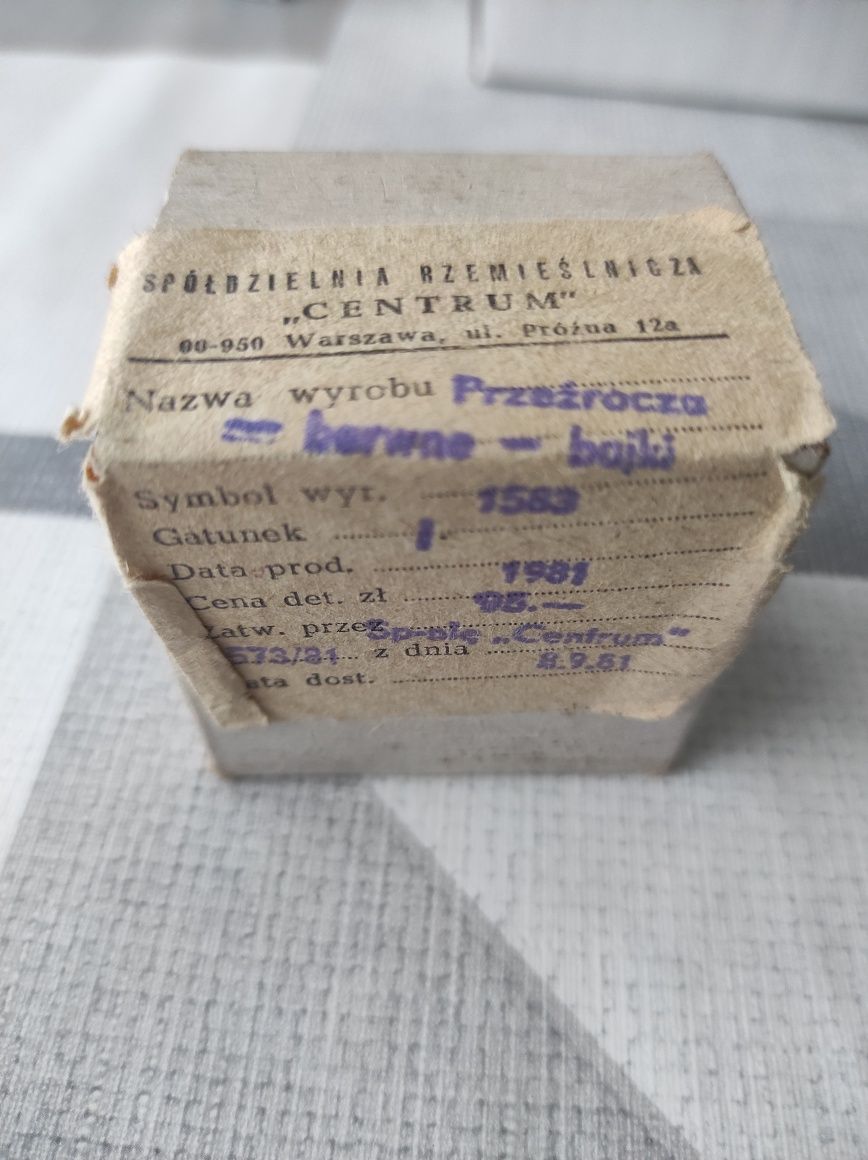 SPÓŁDZIELNIA RZEMIEŚLNICZA
„CENTRUM”
00-950 Warszawa, ul. Próżna 12a
Nazwa wyrobu Przeźrocza
- barwne - bajki
Symbol wyr. 1583
Gatunek I.
Data prod. 1981
Cena det. zł 98.—
Zatw. przez Sp-nię „Centrum”
573/81 z dnia 8.9.81
ata dost.